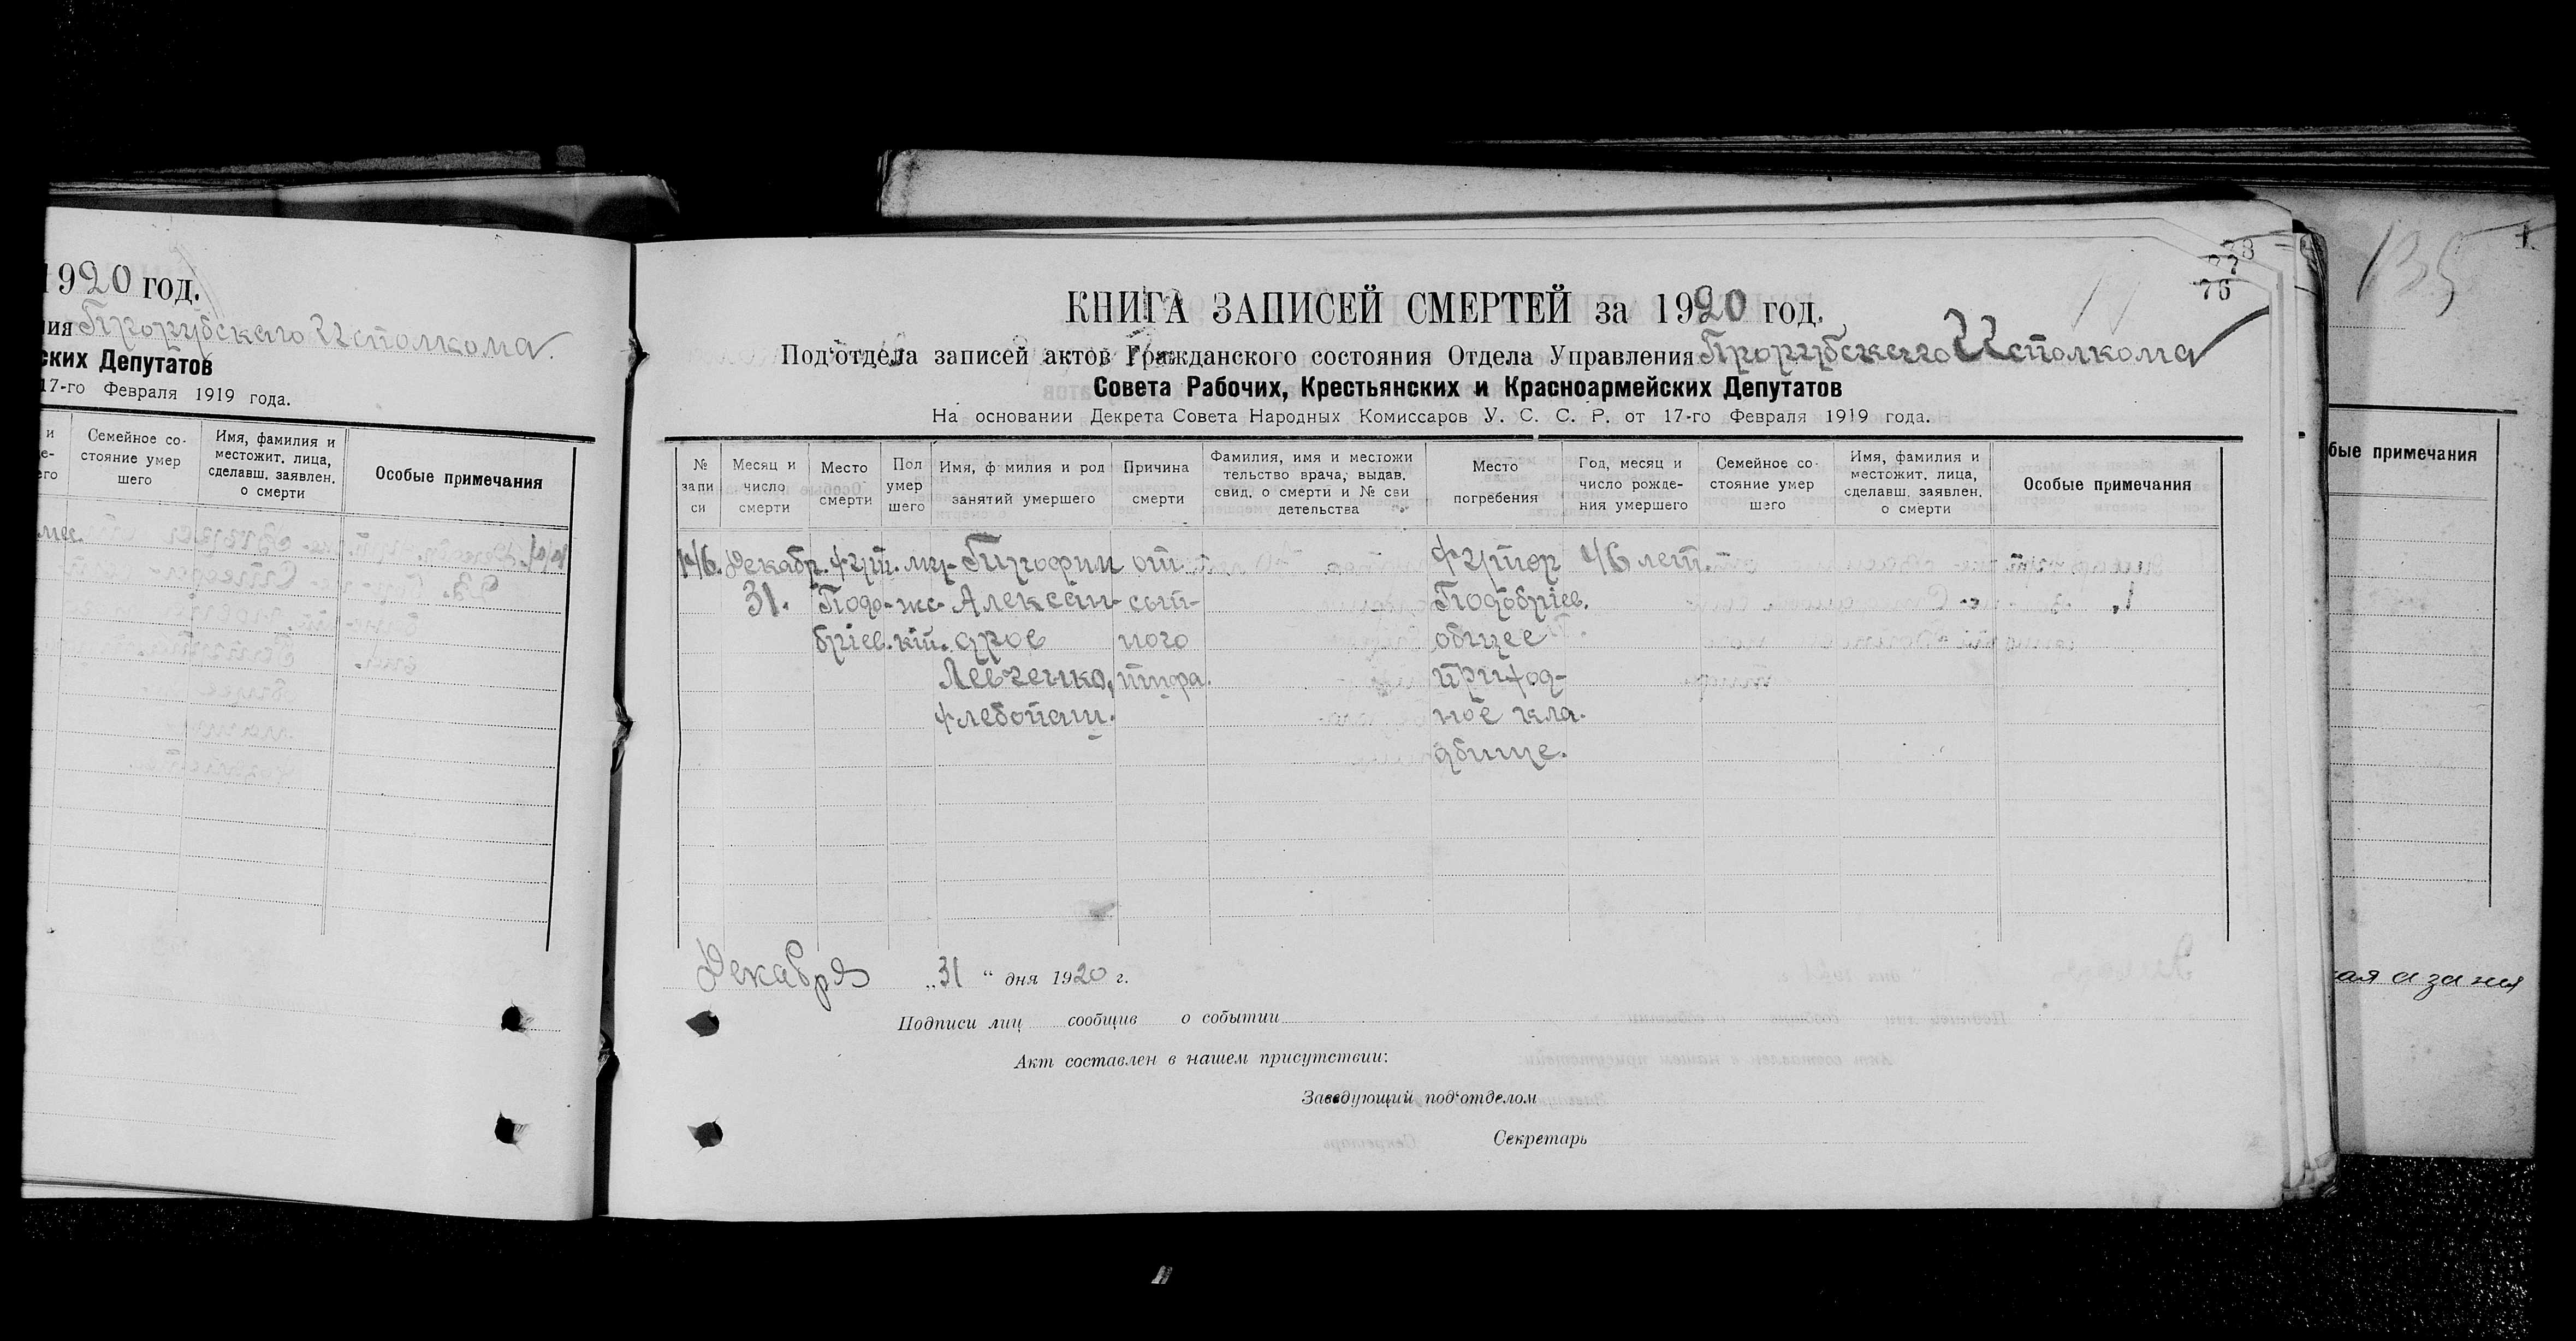 1920 год.
ия Прорубского Исполкома.
ских Депутатов
17-го Февраля 1919 года.
и
е-
его
Семейное со-
стояние умер
шего
Имя, фамилия и
местожит. лица,
сделавш. заявлен.
о смерти
Особые примечания
мес.
38
77
76
КНИГА ЗАПИСЕЙ СМЕРТЕЙ за 1920 год.
Под‘отдела записей актов Гражданского состояния Отдела Управления Прорубского Исполкома
Совета Рабочих, Крестьянских и Красноармейских Депутатов
На основании Декрета Совета Народных Комиссаров У. С. С. Р. от 17-го Февраля 1919 года.
№
запи
си
Месяц и
число
смерти
Место
смерти
Пол
умер
шего
Имя, ф милия и род
занятий умершего
Причина
смерти
Фамилия, имя и местожи
тельство врача, выдав.
свид. о смерти и № сви
детельства
Место
погребения
Год, месяц и
число рожде-
ния умершего
Семейное со-
стояние умер
шего
Имя, фамилия и
местожит. лица,
сделавш. заявлен.
о смерти
Особые примечания
Декабр.
31.
хут.
Подо-
бріев.
му-
жс-
кій.
Прохор
Алексан-
дров
Левченко,
хлебопаш.
от
сып-
ного
тифа.
хутор
Подобріев.
общее
приход-
ное кла-
дбище.
46 лет.
Декабря „31 “ дня 1920 г.
Подписи лиц сообщив о событии
Акт составлен в нашем присутствии:
Заведующий под‘отделом
Секретарь
135
бые примечания